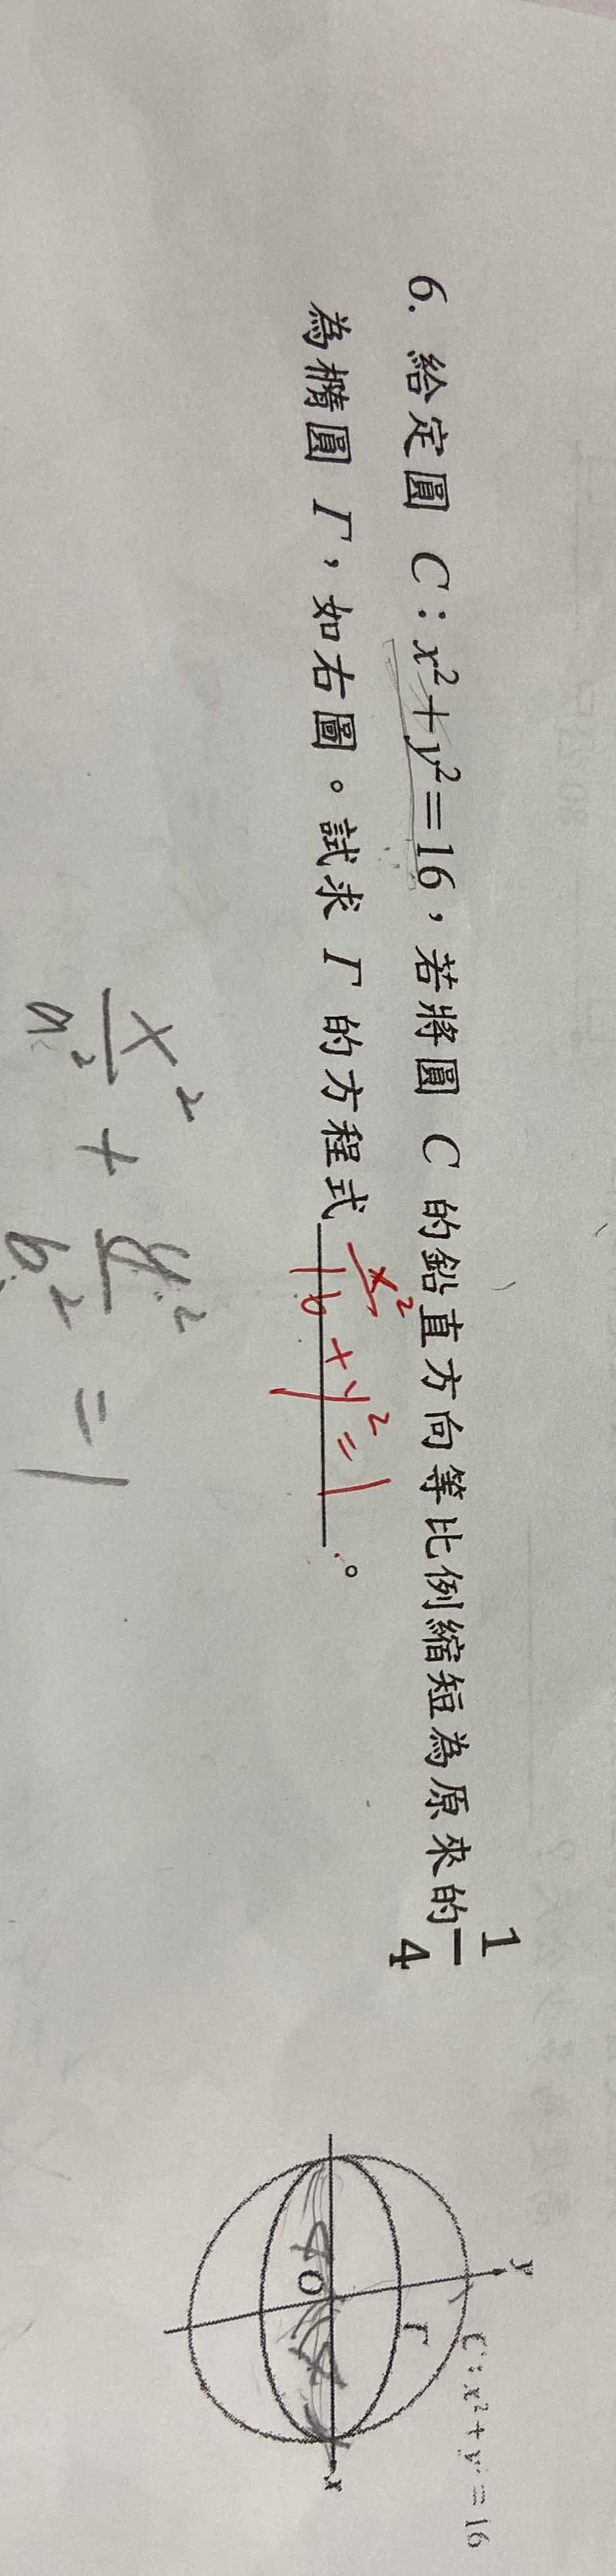 6. 給定圓 C:x²+y²=16,若將圓 C 的鉛直方向等比例縮短為原來的 1/4
為橢圓 Γ,如右圖。試求 Γ 的方程式 x²/16 + y² = 1 。
x²/a² + y²/b² = 1
y
C:x²+y²=16
Γ
O
x